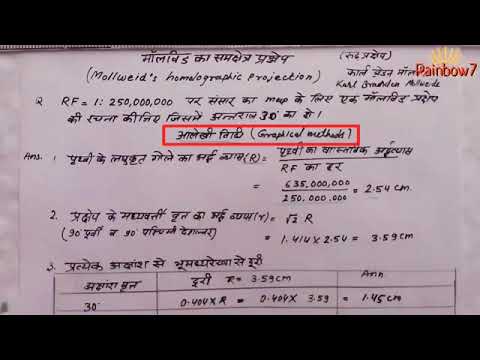 मॉलविड का समक्षेत्र प्रक्षेप
(रूढ़ प्रक्षेप)
(Mollweid's homolographic Projection)
कार्ल
Rainbow7
Karl Brandan Mollweide
Q. RF = 1: 250,000,000 पर संसार का map के लिए एक मॉलविड प्रक्षेप
की रचना कीजिए जिसमें अन्तराल 30° का हो।
आलेखी विधि (Graphical methods)
Ans. 1. पृथ्वी के लघुकृत गोले का अर्द्ध व्यास (R) = पृथ्वी का वास्तविक अर्द्धव्यास
RF का हर
635.000,000
250.000.000 = 2.54 cm
2. प्रक्षेप के मध्यवर्ती वृत का अर्द्ध व्यास (r) = √2 R
(90° पूर्वी व 90° पश्चिमी देशान्तर) = 1.414 X 2.54 = 3.59cm
3. प्रत्येक अक्षांश से भूमध्यरेखा से दूरी
अक्षांश वृत दूरी R = 3.59cm Ann
30° 0.404 X R = 0.404 X 3.59 = 1.45cm